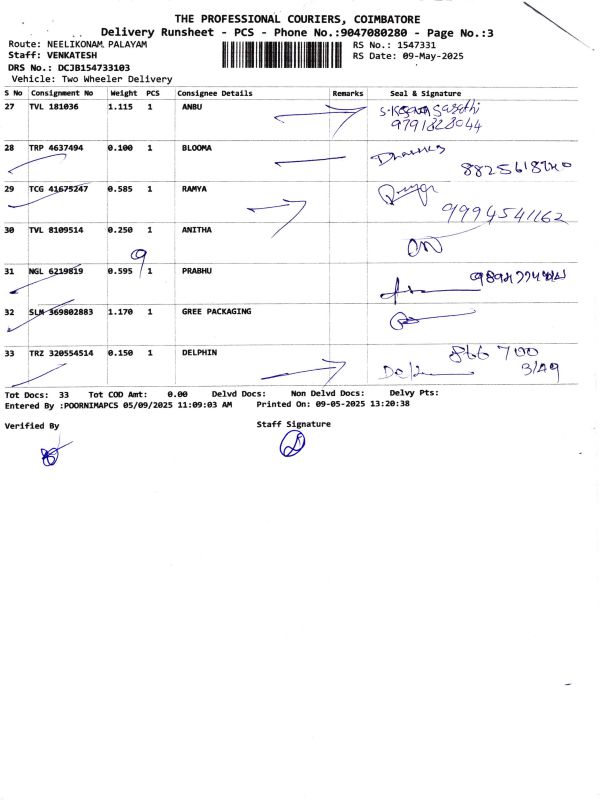 THE PROFESSIONAL COURIERS, COIMBATORE
Delivery Runsheet - PCS - Phone No.:9047080280 - Page No.:3
Route: NEELIKONAM PALAYAM RS No.: 1547331
Staff: VENKATESH RS Date: 09-May-2025
DRS No.: DCJB154733103
Vehicle: Two Wheeler Delivery
S No Consignment No Weight PCS Consignee Details Remarks Seal & Signature
27 TVL 181036 1.115 1 ANBU
9791828044
28 TRP 4637494 0.100 1 BLOOMA
29 TCG 41675247 0.585 1 RAMYA
9994541162
30 TVL 8109514 0.250 1 ANITHA
31 NGL 6219819 0.595 1 PRABHU
32 SLM 369802883 1.170 1 GREE PACKAGING
33 TRZ 320554514 0.150 1 DELPHIN
866 700
Tot Docs: 33 Tot COD Amt: 0.00 Delvd Docs: Non Delvd Docs: Delvy Pts:
Entered By :POORNIMAPCS 05/09/2025 11:09:03 AM Printed On: 09-05-2025 13:20:38
Verified By Staff Signature